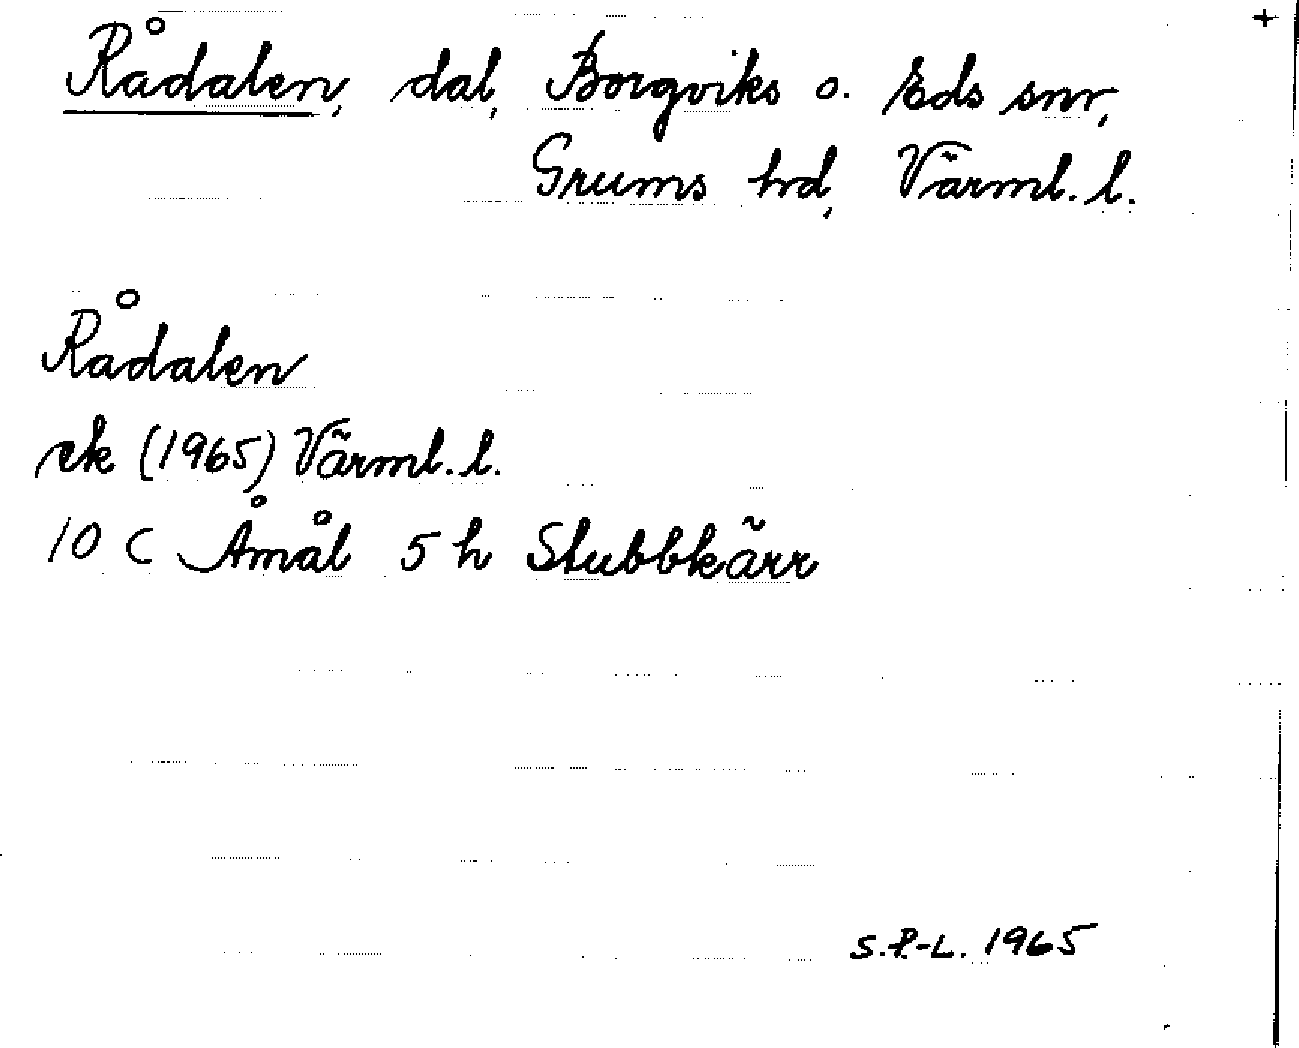 +
Rådalen, dal, Borgviks o. Eds snr,
Grums hd, Värml. l.
Rådalen
ek (1965) Värml. l.
10 C Åmål 5 h Stubbkärr
S.P-L. 1965